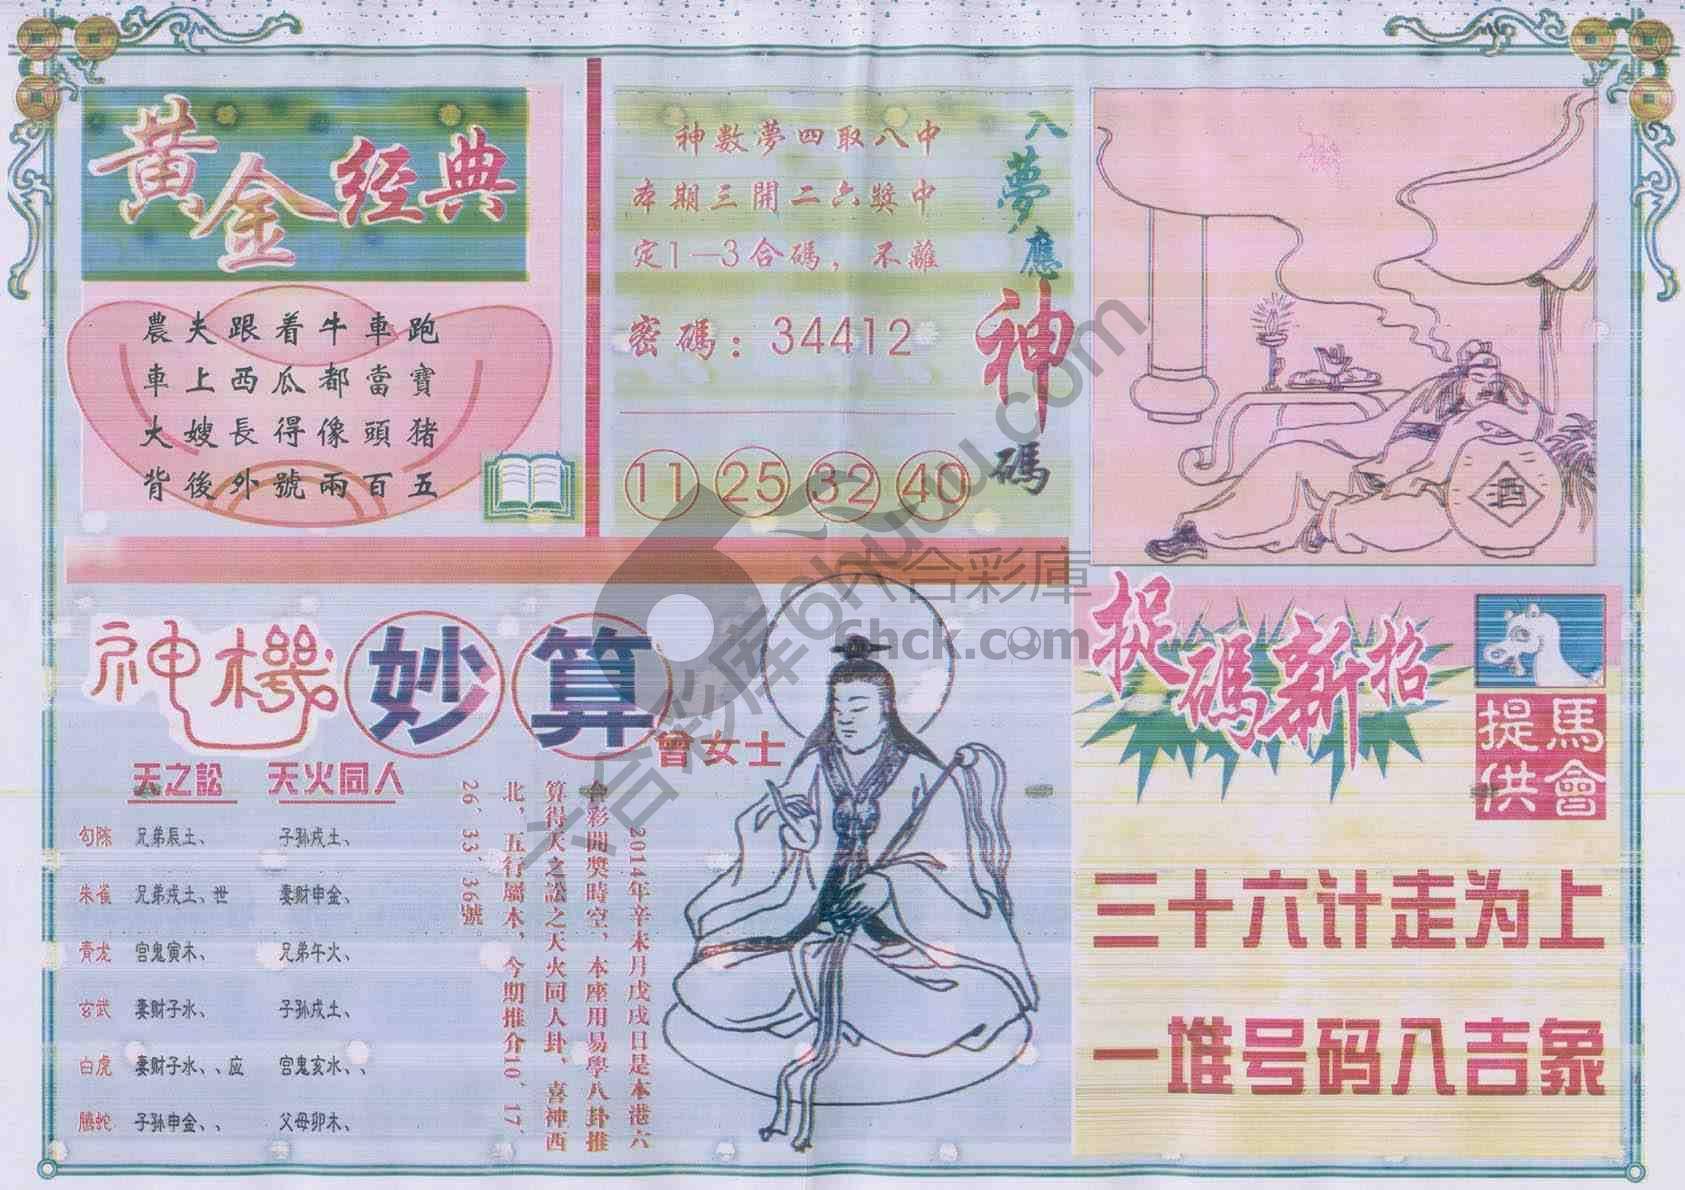 黄金经典
農夫跟着牛車跑
車上西瓜都當寶
大嫂長得像頭猪
背後外號兩百五
神數夢四取八中
本期三開二六獎中
定1—3合碼，不離
密碼：34412
11 25 32 40
入夢應神碼
酒
神機妙算
曾女士
天之訟 天火同人
勾陈 兄弟辰土、 子孙戌土、
朱雀 兄弟戌土、世 妻财申金、
青龙 宫鬼寅木、 兄弟午火、
玄武 妻财子水、 子孙戌土、
白虎 妻财子水、、应 宫鬼亥水、、
腾蛇 子孙申金、、 父母卯木、
2014年辛未月戊戌日是本港六
合彩開獎時空，本座用易學八卦推
算得天之訟之天火同人卦，喜神西
北，五行屬木，今期推介10、17、
26、33、36號。
捉碼新招
馬會
提供
三十六计走为上
一堆号码入吉象
六合彩庫
6hck.com
六合彩库6huuu.com